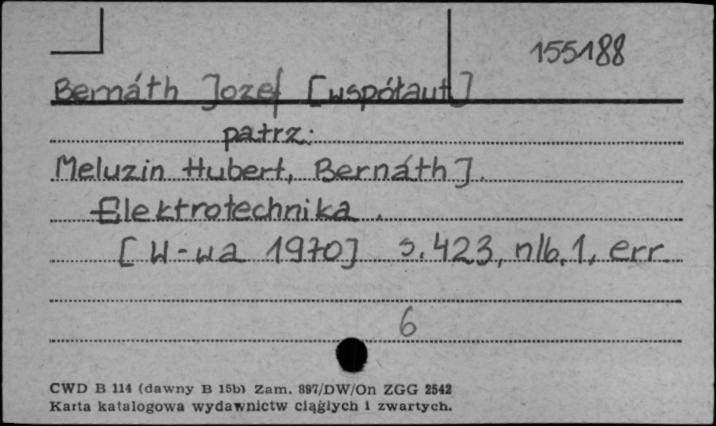 155188
Bernáth Jozef [współaut]
patrz:
Meluzin Hubert, Bernáth J.
Elektrotechnika.
[W-wa 1970] s. 423, nlb. 1, err.
6
CWD B 114 (dawny B 15b) Zam. 897/DW/On ZGG 2542
Karta katalogowa wydawnictw ciągłych i zwartych.